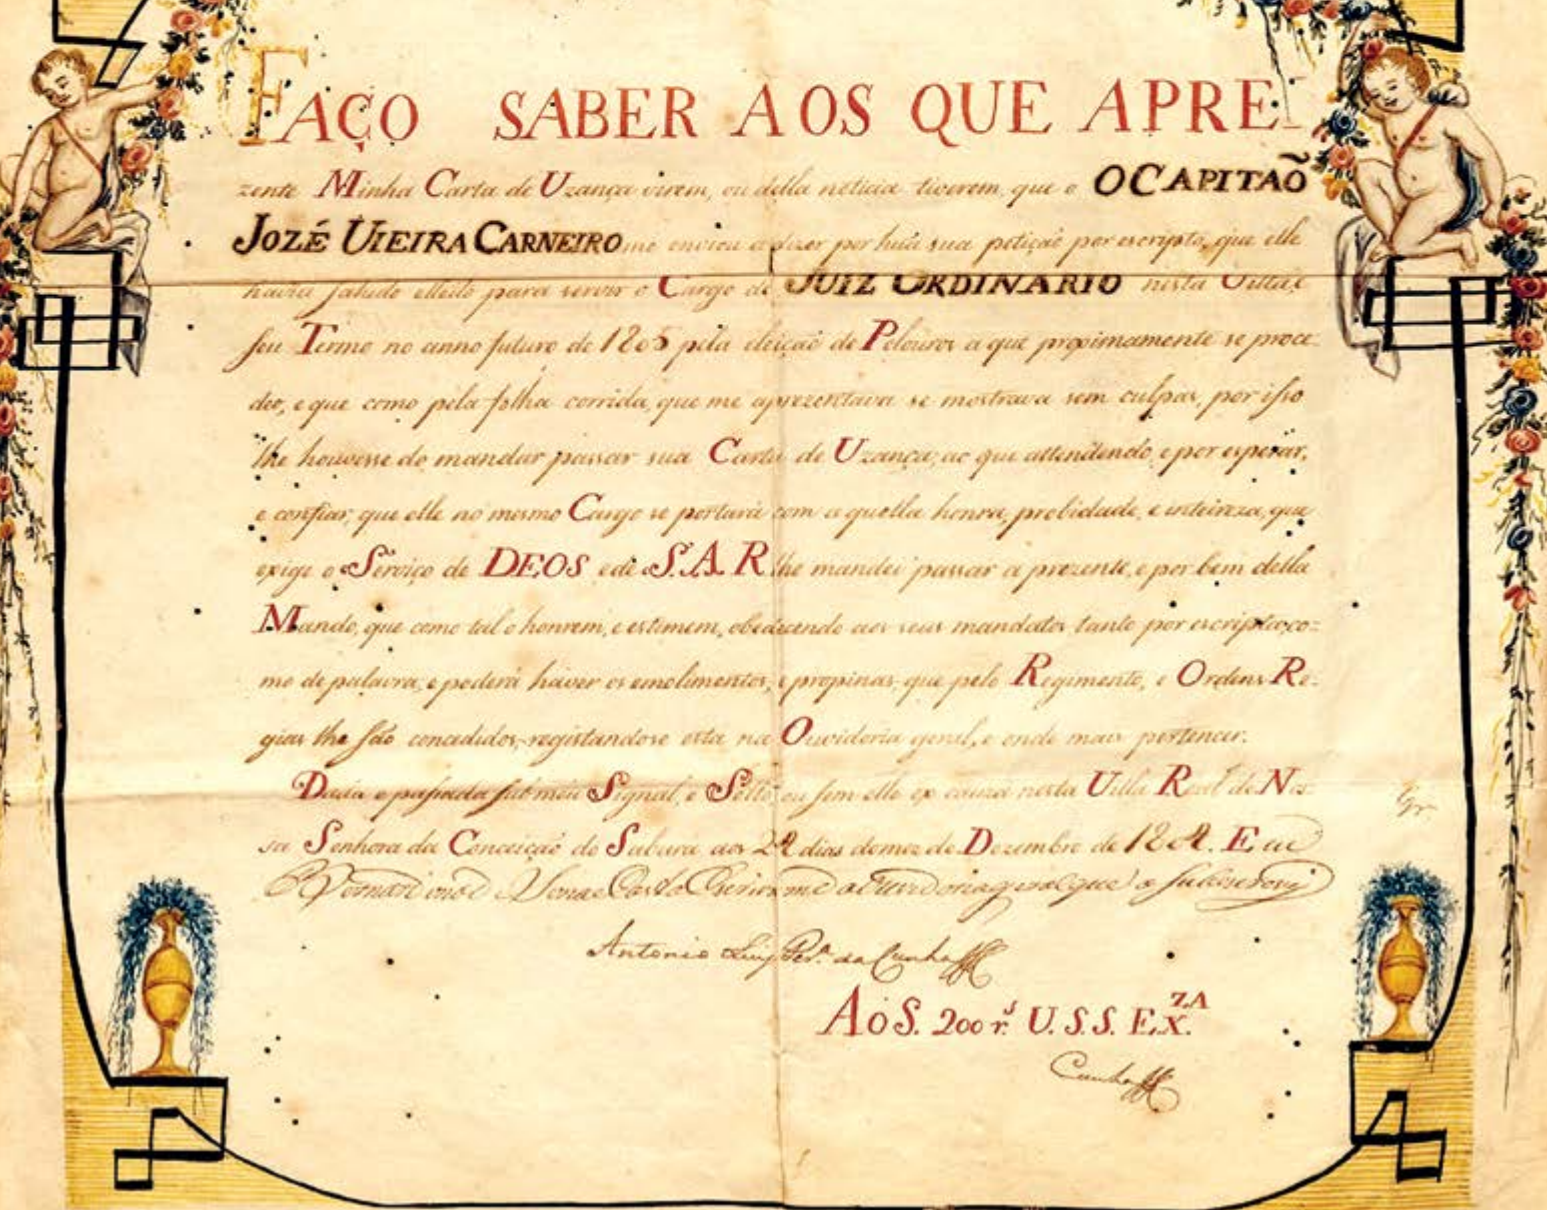 FAÇO SABER AOS QUE APRE-
zente Minha Carta de Uzança virem, ou della noticia tiverem, que o O CAPITAÕ
JOZÉ UIEIRA CARNEIRO me enviou a dizer por huã sua petiçaõ por escripto, que elle
havia sahido elleito para servir o Cargo de JUIZ ORDINARIO nesta Villa, e
seu Termo no anno futuro de 1805 pela eleiçaõ de Pelouros a que proximamente se proce-
deo, e que como pela folha corrida, que me aprezentava se mostrava sem culpas, por isso
lhe houvesse de mandar passar sua Carta de Uzança; ao que attendendo, e por esperar,
e confiar, que elle no mesmo Cargo se portará com aquella honra, probidade, e inteireza, que
exige o Serviço de DEOS e de S.A.R lhe mandei passar a prezente, e por bem della
Mando, que como tal o honrem, e estimem, obedecendo aos seus mandatos, tanto por escripto, co-
mo de palavra, e poderá haver os emolimentos, e propinas, que pelo Regimento, e Ordens Re-
gias lhe saõ concedidos, registandose esta na Ouvidoria geral, e onde mais pertencer.
Dada e passada sub meu Signal, e Sello ou sem elle ex cauza nesta Uilla Real de Nos-
sa Senhora da Conceiçaõ do Sabara aos 22 dias do mez de Dezembro de 1804. E eu
escrivam da ouvidoria geral que o subscrevij
Antonio Luiz Per.ª da Cunha
AóS. 200 r.s U. S. S. EX.ZA
Cunha